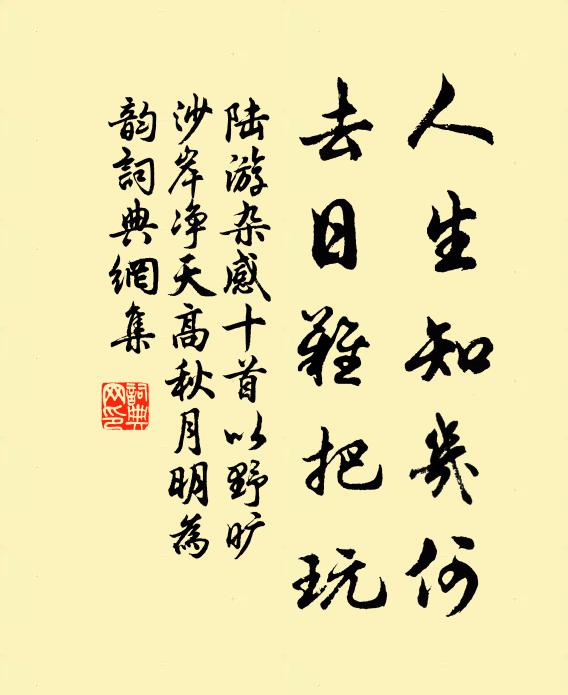 人生知幾何
去日難把玩
陆游杂感十首以野旷
沙岸净天高秋月明為
韵詞典網集
詞典網印